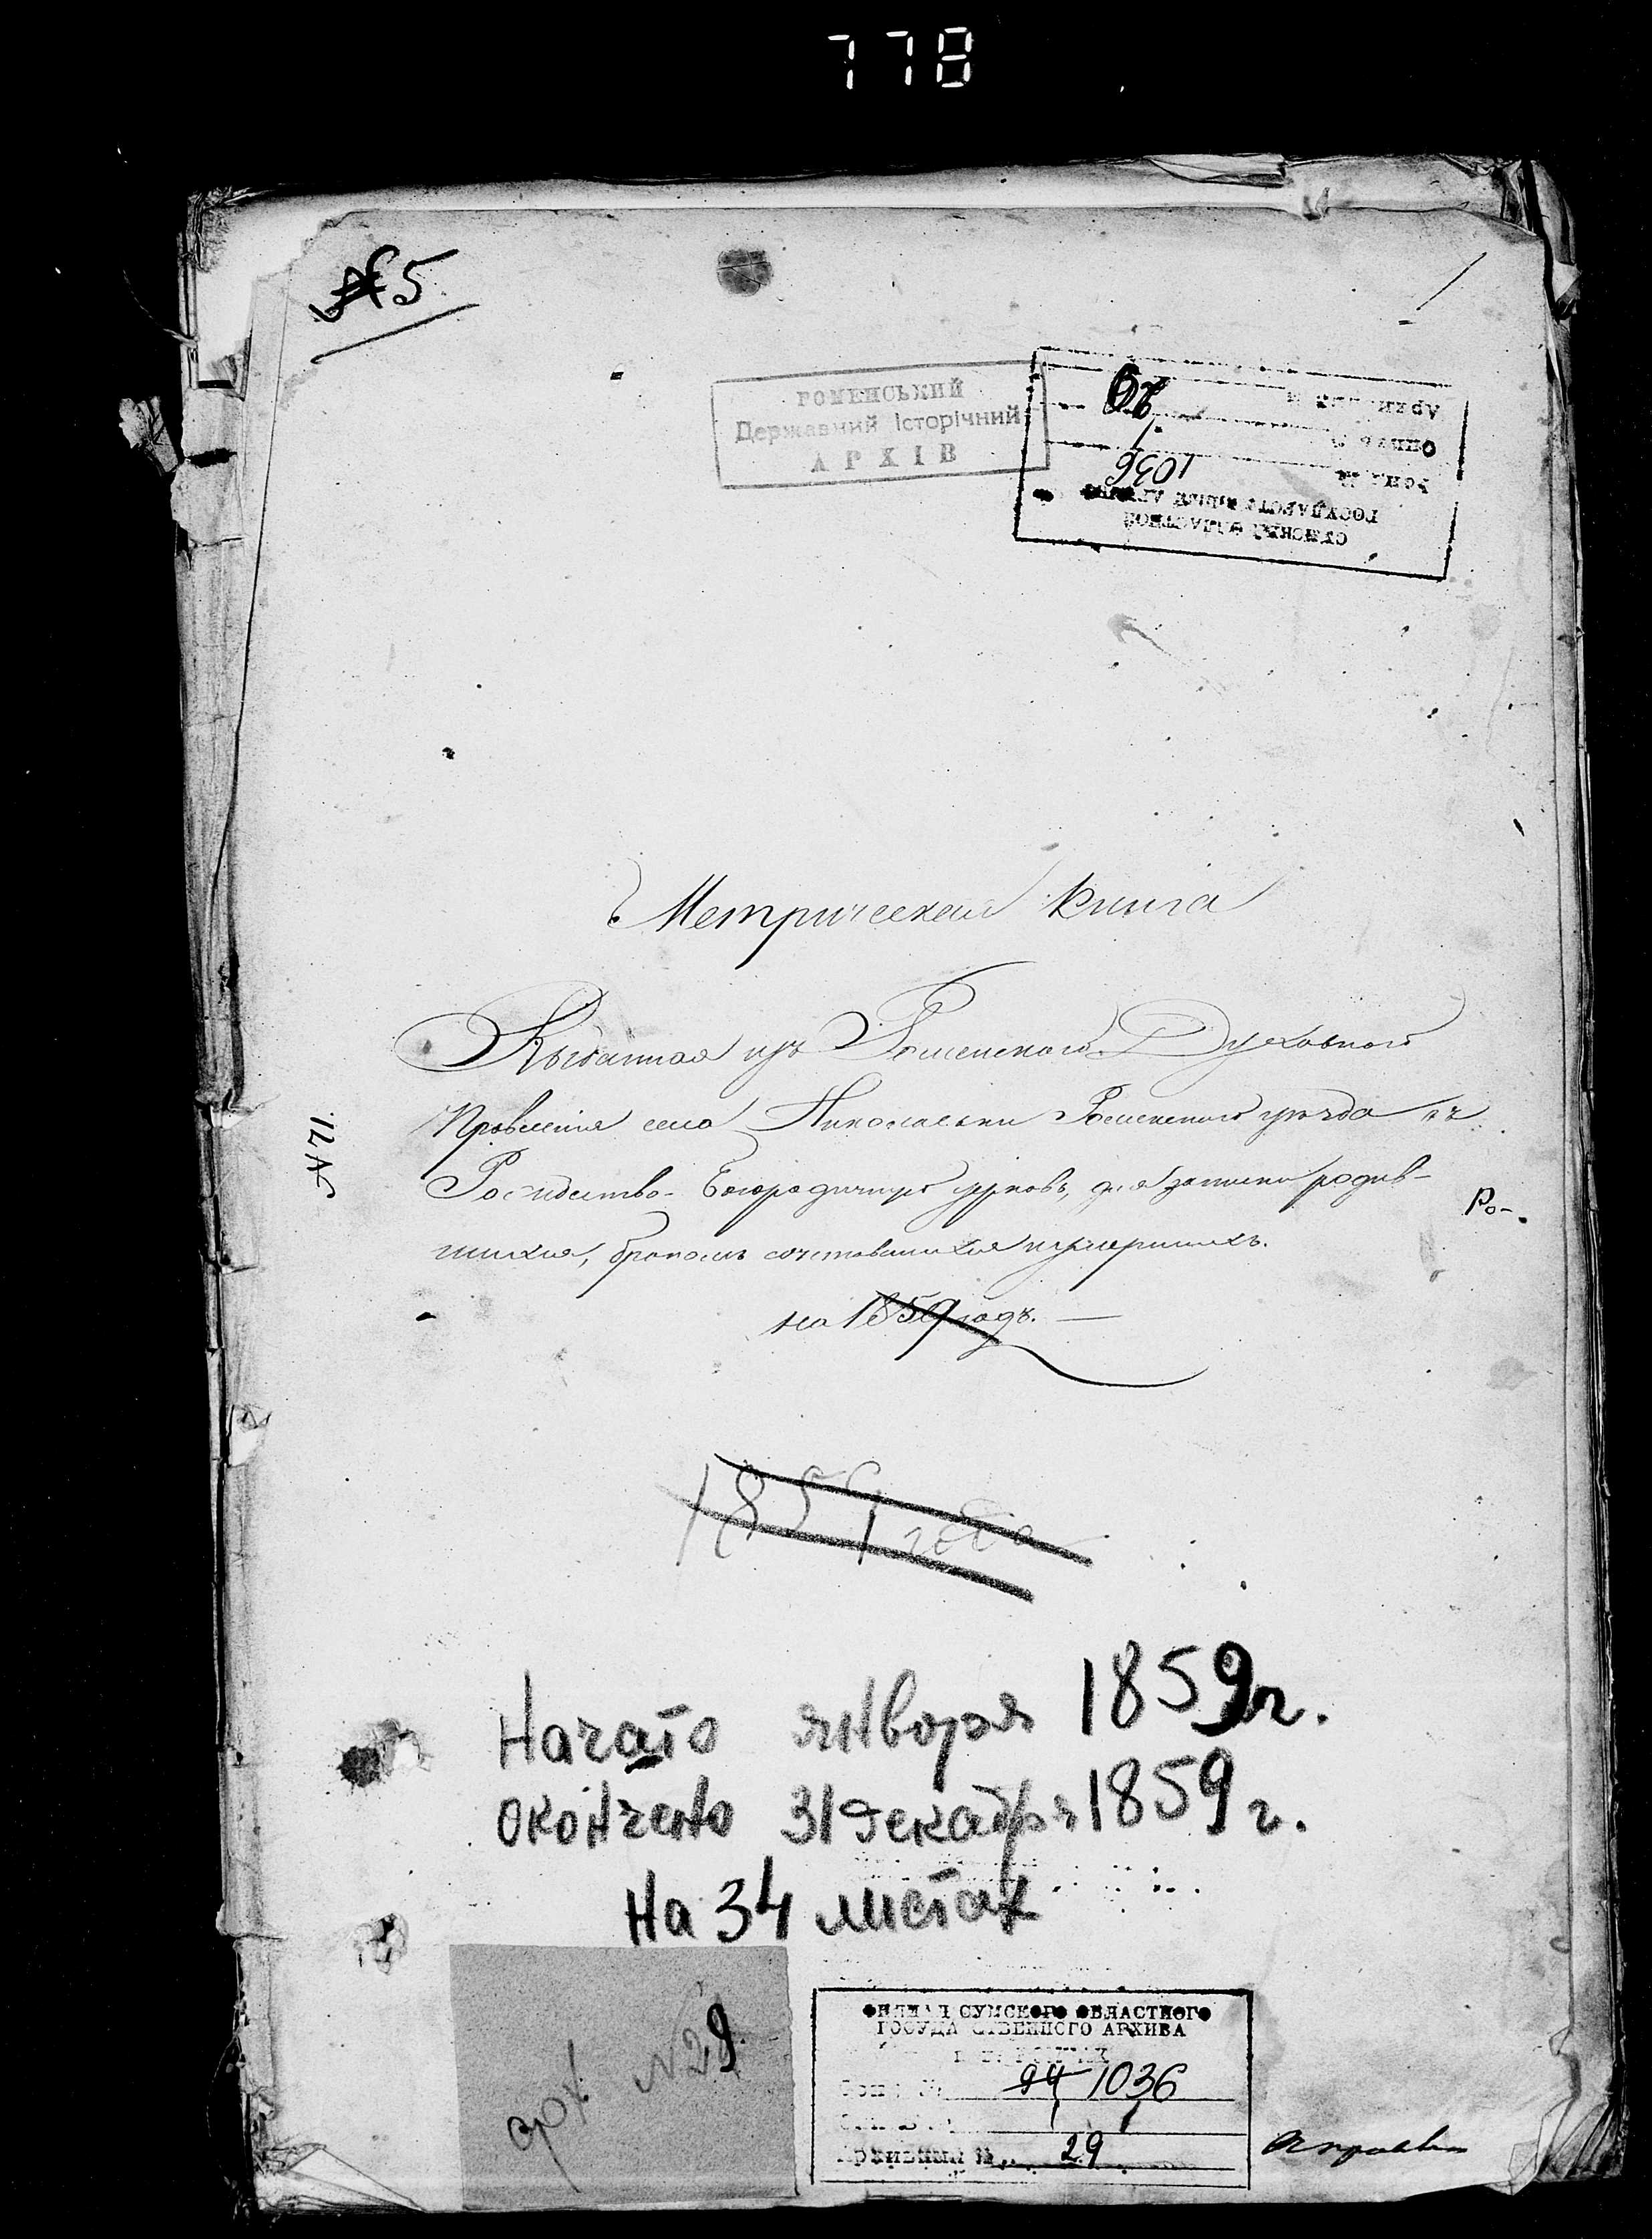 778
№ 5.
РОМЕНСЬКИЙ
Державний Історічний
АРХІВ
СУМСКИЙ ОБЛАСТНОЙ
ГОСУДАРСТВЕННЫЙ АРХИВ
Фонд № 1036
Опись № 1
Архивный № 29
Метрическая книга
Выданная изъ Роменскаго Духовнаго
Правленія села Николаевки Роменскаго уѣзда въ
Рождество-Богородичную церковь, для записки родив-
шихся, бракомъ сочетавшихся и умершихъ.
на 1859 годъ. —
Ро-.
1859 года
Начато января 1859 г.
окончено 31 декабря 1859 г.
На 34 листах
№ 29
ФИЛИАЛ СУМСКОГО ОБЛАСТНОГО
ГОСУДАРСТВЕННОГО АРХИВА
В Г. РОМНАХ
Фонд № 94 1036
Опись № 1
Архивный № 29